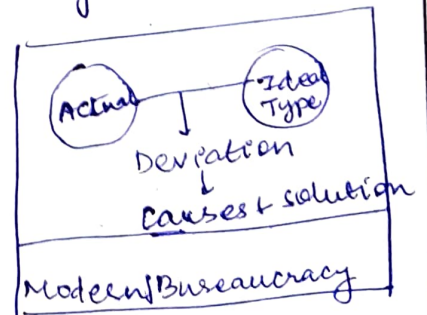 Actual
Ideal
Type
Deviation
Causes + solution
Modern Bureaucracy